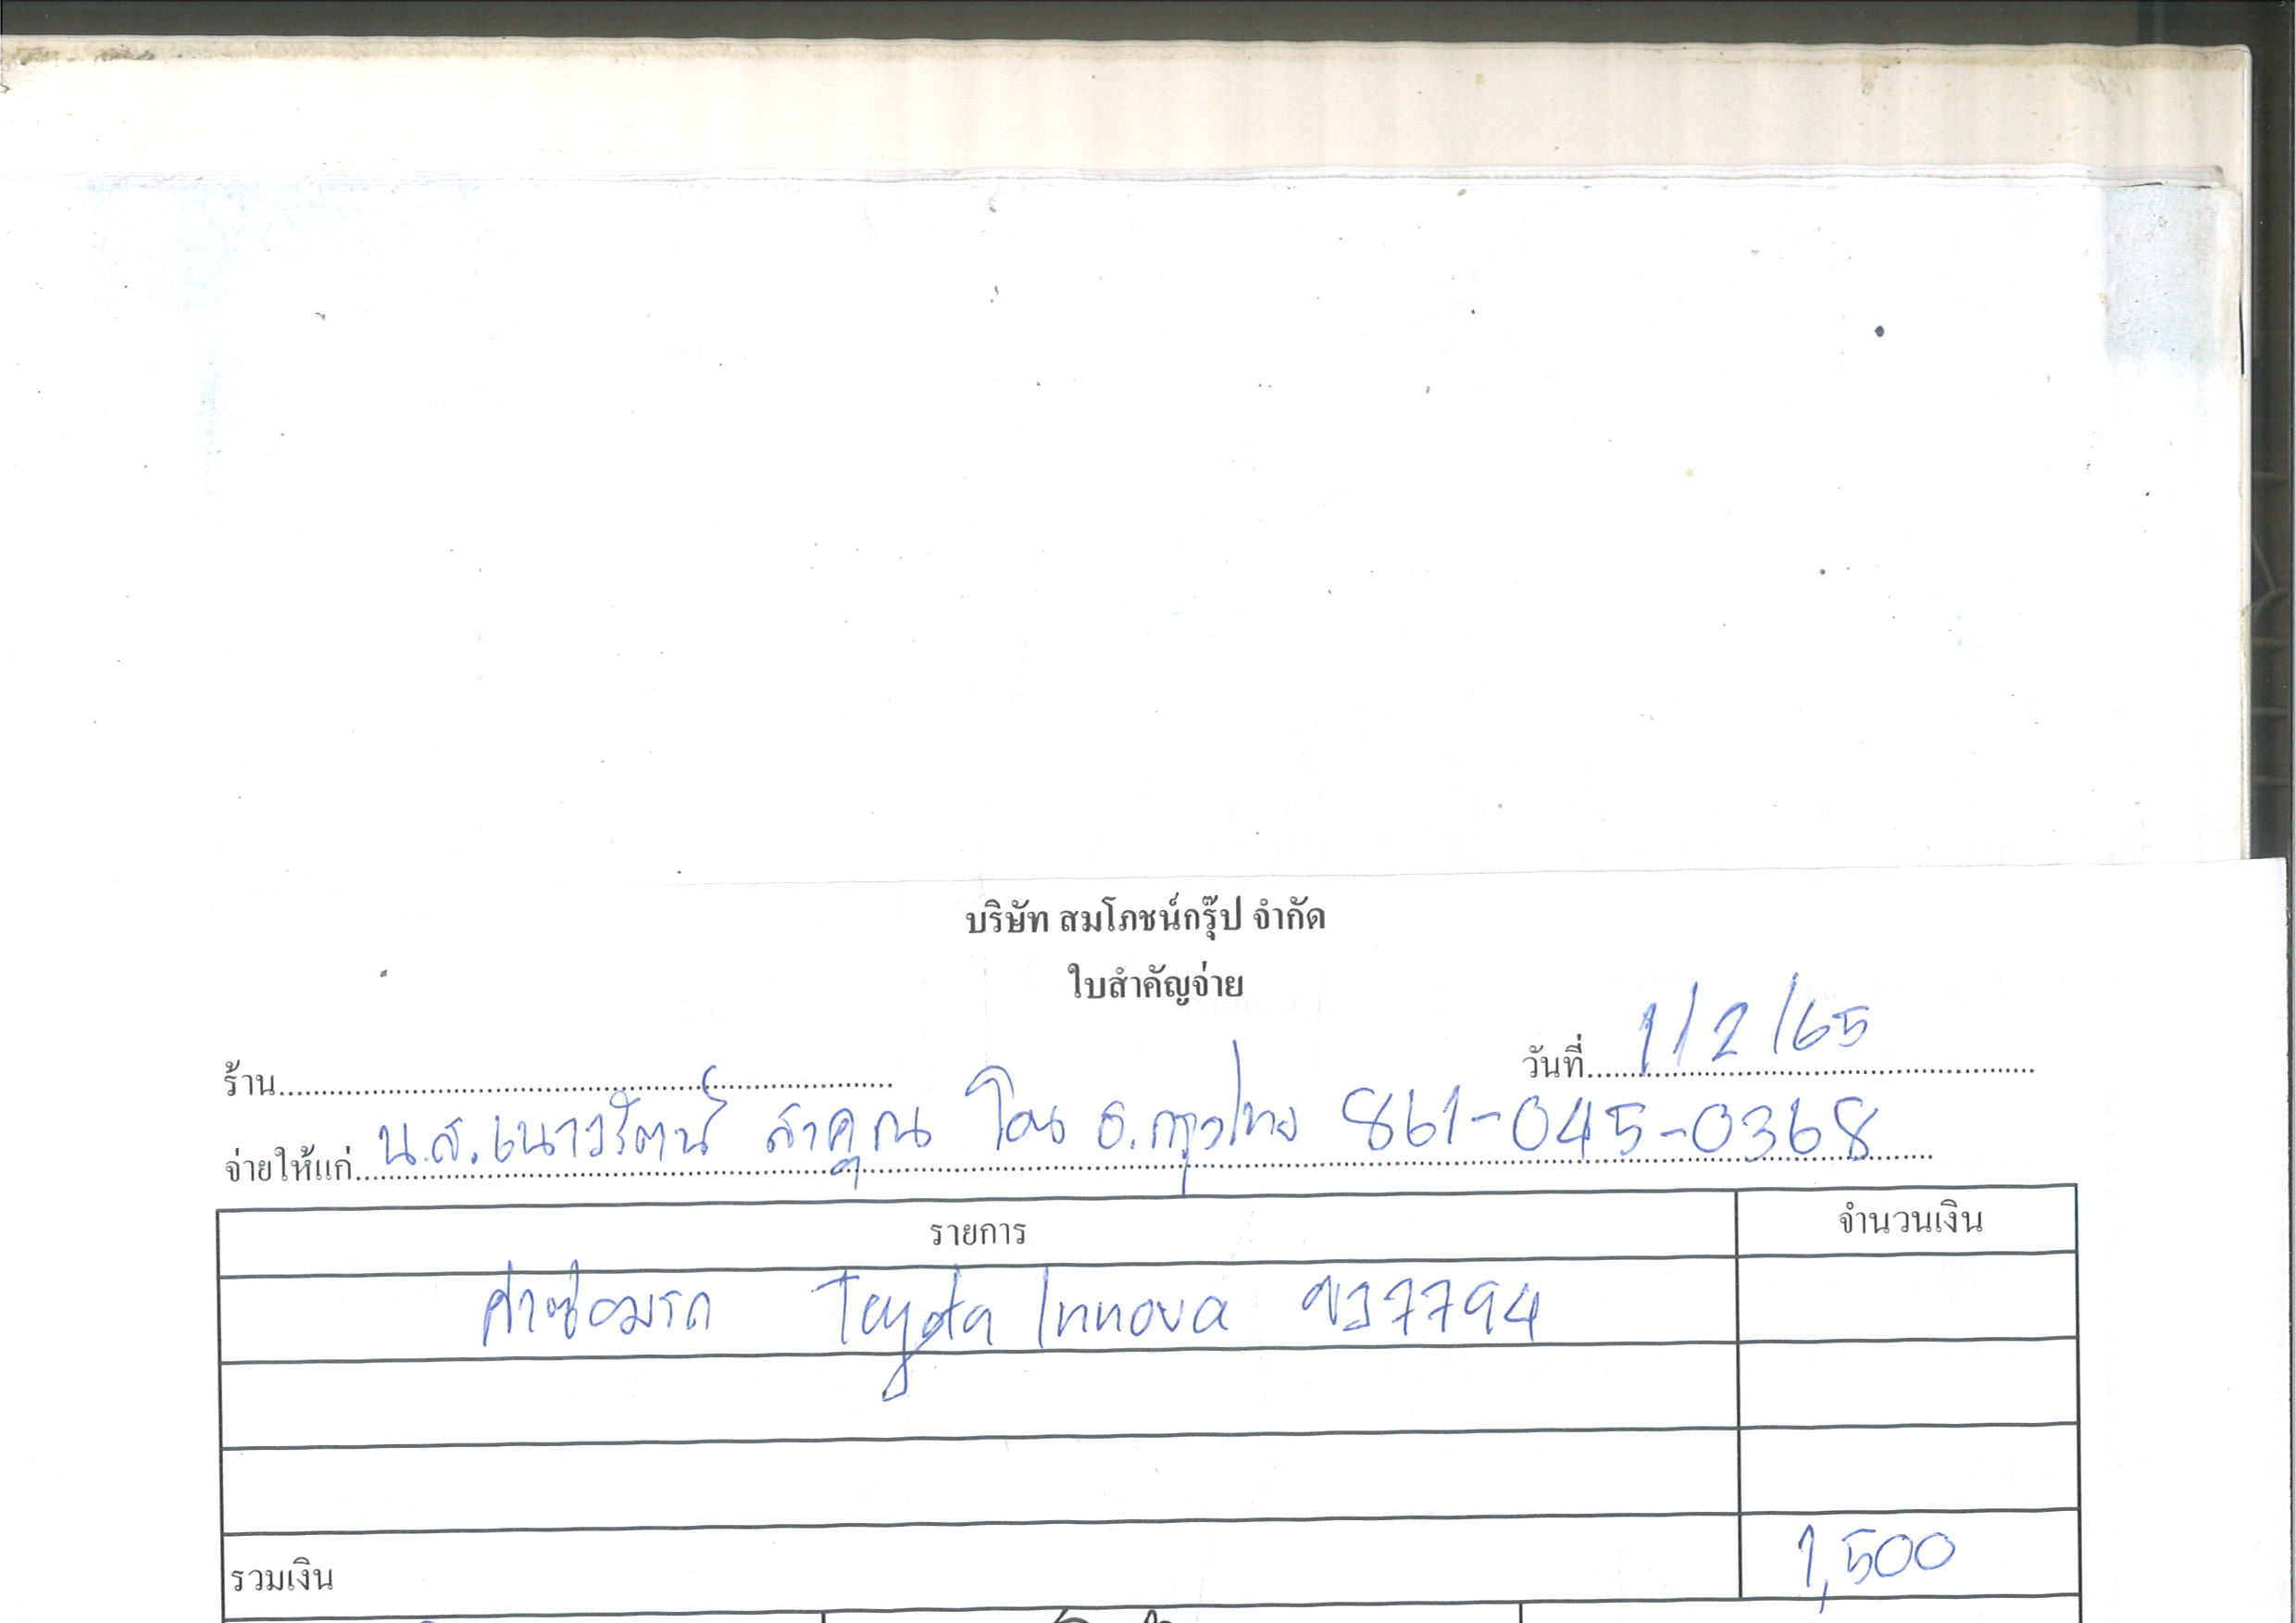 บริษัท สมโภชน์กรุ๊ป จำกัด
ใบสำคัญจ่าย
วันที่ 1/2/65
ร้าน
จ่ายให้แก่ น.ส.เนาวรัตน์ ลาคุณ โอน ธ.กรุงไทย 861-045-0368
รายการ จำนวนเงิน
ค่าซ่อมรถ Toyota Innova 7794
รวมเงิน 1,500